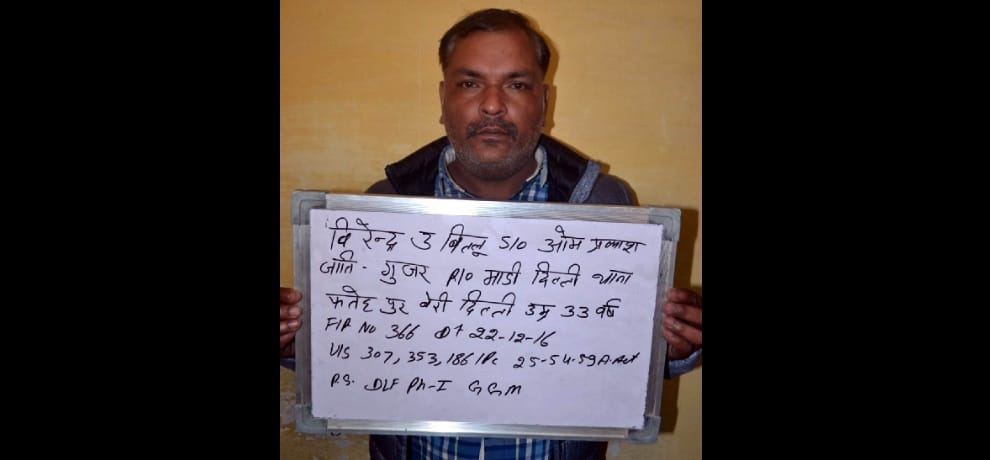 विरेन्द्र उ बितलू S/O ओम प्रकाश
जाति - गुजर R/O माडी दिल्ली थाना
फतेह पुर बेरी दिल्ली उम्र 33 वर्ष
FIR No 366 Dt 22-12-16
U/S 307, 353, 186 IPC 25-54-59 A. Act
P.S. DLF Ph-I GGM